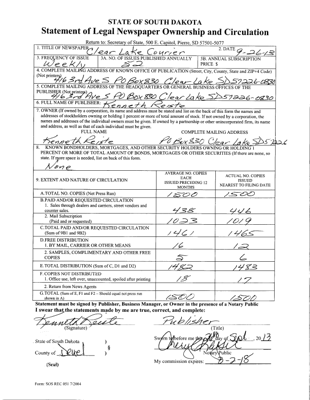 STATE OF SOUTH DAKOTA
Statement of Legal Newspaper Ownership and Circulation
Return to: Secretary of State, 500 E. Capitol, Pierre, SD 57501-5077
1. TITLE OF NEWSPAPER Clear Lake Courier
2. DATE 9-26-13
3. FREQUENCY OF ISSUE Weekly
3A. NO. OF ISSUES PUBLISHED ANNUALLY 52
3B. ANNUAL SUBSCRIPTION PRICE $
4. COMPLETE MAILING ADDRESS OF KNOWN OFFICE OF PUBLICATION (Street, City, County, State and ZIP+4 Code) (Not printers)
416 3rd Ave S PO Box 830 Clear Lake SD 57226-0830
5. COMPLETE MAILING ADDRESS OF THE HEADQUARTERS OR GENERAL BUSINESS OFFICES OF THE PUBLISHER (Not printers)
416 3rd Ave S PO Box 830 Clear Lake SD 57226-0830
6. FULL NAME OF PUBLISHER: Kenneth Reiste
7. OWNER (If owned by a corporation, its name and address must be stated and listed on the back of this form the names and
addresses of stockholders owning or holding 1 percent or more of total amount of stock. If not owned by a corporation, the
names and addresses of the individual owners must be given. If owned by a partnership or other unincorporated firm, its name
and address, as well as that of each individual must be given.
FULL NAME COMPLETE MAILING ADDRESS
Kenneth Reiste PO Box 830 Clear Lake SD 57226
8. KNOWN BONDHOLDERS, MORTGAGES, AND OTHER SECURITY HOLDERS OWNING OR HOLDING 1
PERCENT OR MORE OF TOTAL AMOUNT OF BONDS, MORTGAGES OR OTHER SECURITIES (If there are none, so
state. If more space is needed, list on back of this form.
None
9. EXTENT AND NATURE OF CIRCULATION
AVERAGE NO. COPIES EACH ISSUED PRECEDING 12 MONTHS
ACTUAL NO. COPIES ISSUED NEAREST TO FILING DATE
A. TOTAL NO. COPIES (Net Press Run) 1500 1500
B. PAID AND/OR REQUESTED CIRCULATION
1. Sales through dealers and carriers, street vendors and counter sales 438 446
2. Mail Subscription (Paid and or requested) 1023 1019
C. TOTAL PAID AND/OR REQUESTED CIRCULATION (Sum of 9B1 and 9B2) 1461 1465
D. FREE DISTRIBUTION
1. BY MAIL, CARRIER OR OTHER MEANS 16 12
2. SAMPLES, COMPLIMENTARY AND OTHER FREE COPIES 5 6
E. TOTAL DISTRIBUTION (Sum of C, D1 and D2) 1482 1483
F. COPIES NOT DISTRIBUTED
1. Office use, left over, unaccounted, spoiled after printing 18 17
2. Return from News Agents
G. TOTAL (Sum of E, F1 and F2 - Should equal net press run shown in A) 1500 1500
Statement must be signed by Publisher, Business Manager, or Owner in the presence of a Notary Public
I swear that the statements made by me are true, correct, and complete:
Kenneth Reiste Publisher
(Signature) (Title)
State of South Dakota )
) §
County of Deuel )
(Seal)
Sworn to before me this day of Sept, 2013
Notary Public
My commission expires: 3-2-18
Form: SOS REC 051 7/2004